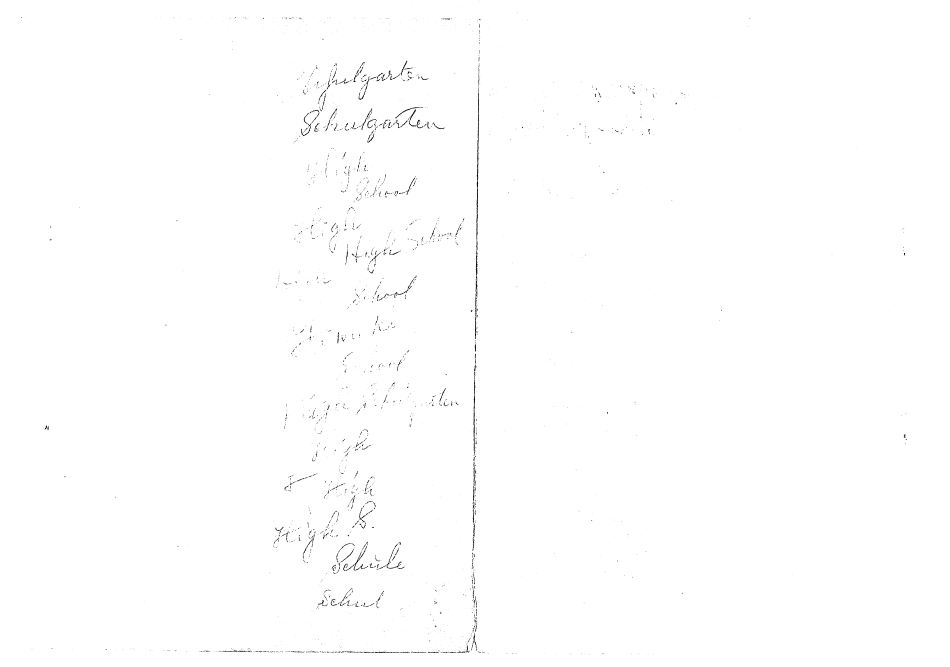 Schulgarten
Schulgarten
High
School
High
High School
School
School
High Schulgarten
High
High
High S.
Schule
Schul